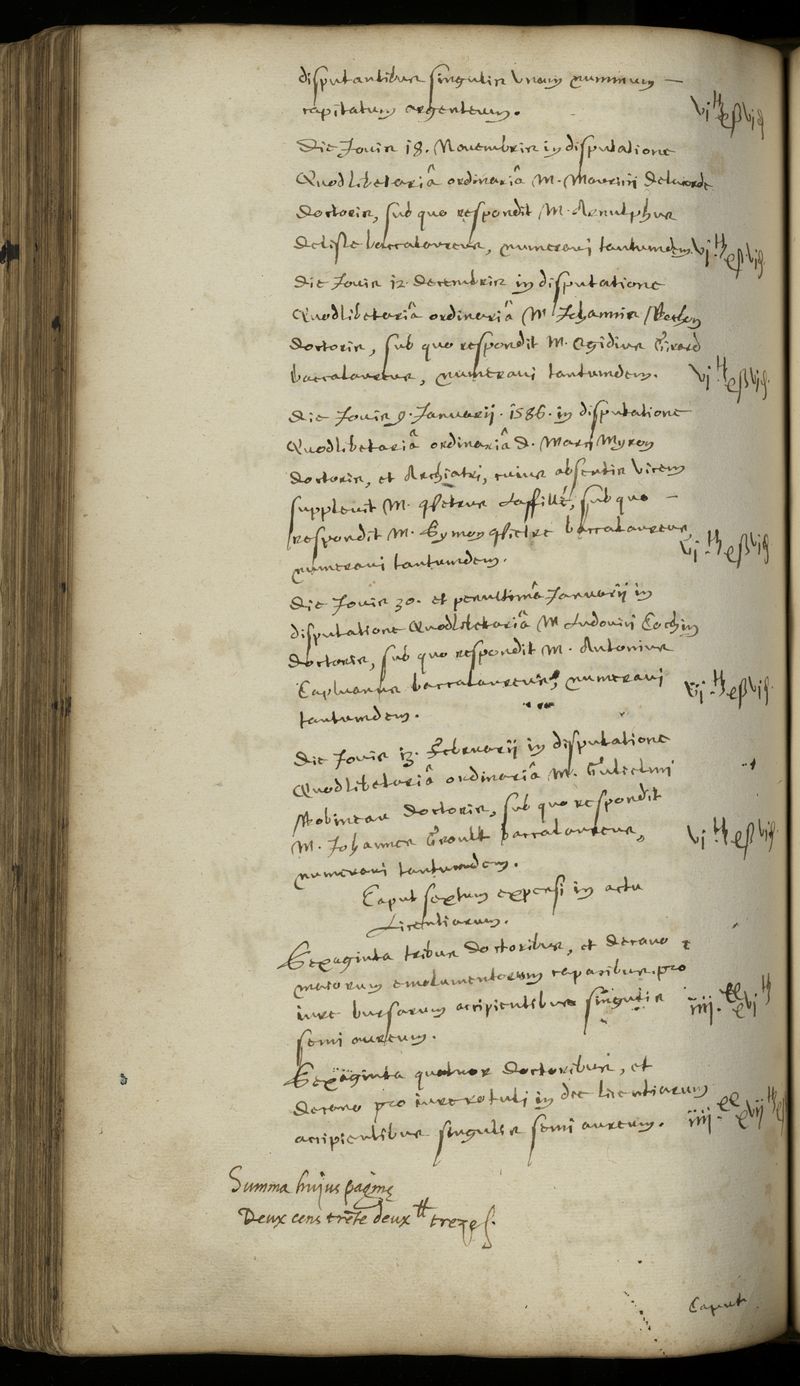 disputantibus singulis unum nummum —
capitatum argenteum.
Die Jovis 18. Novembris in disputatione
Quodlibetariâ ordinariâ M. Maurini Delacorde
doctoris, sub quo respondit M. Arnulphus
Delisle baccalaureus, numeravi tantumdem.
Die Jovis 12. decembris in disputatione
Quodlibetariâ ordinariâ M. Johannis
doctoris, sub quo respondit M. Egidius Girard
baccalaureus, numeravi tantumdem.
Die Jovis 9. Januarij. 1586. in disputatione
Quodlibetariâ ordinariâ D. Marci Myron
doctoris, et Archiatri, cuius absentis vicem
supplevit M. Petrus Laffillé, sub quo —
respondit M. Symon Pietre baccalaureus,
numeravi tantumdem.
Die Jovis 30. et penultimâ Januarij in
disputatione Quodlibetariâ M. Ludovici Cochin
doctoris, sub quo respondit M. Antonius
baccalaureus, numeravi
tantumdem.
Die Jovis 13. Februarij in disputatione
Quodlibetariâ ordinariâ M. Gulielmi
Robineau doctoris, sub quo respondit
M. Johannes Groult baccalaureus,
numeravi tantumdem.
Caput sextum expensi in actu
Licentiarum.
Sexaginta tribus doctoribus, et decano
maiorum emolumentorum capacibus, pro
iure bursarum accipientibus singulis
semi aureum.
Sexaginta quatuor doctoribus, et
decano pro iure rotuli in die licentiarum
accipientibus singulis semi aureum.
Summa hujus paginę
Deux cens trēte deux ₶ treze s.
Caput